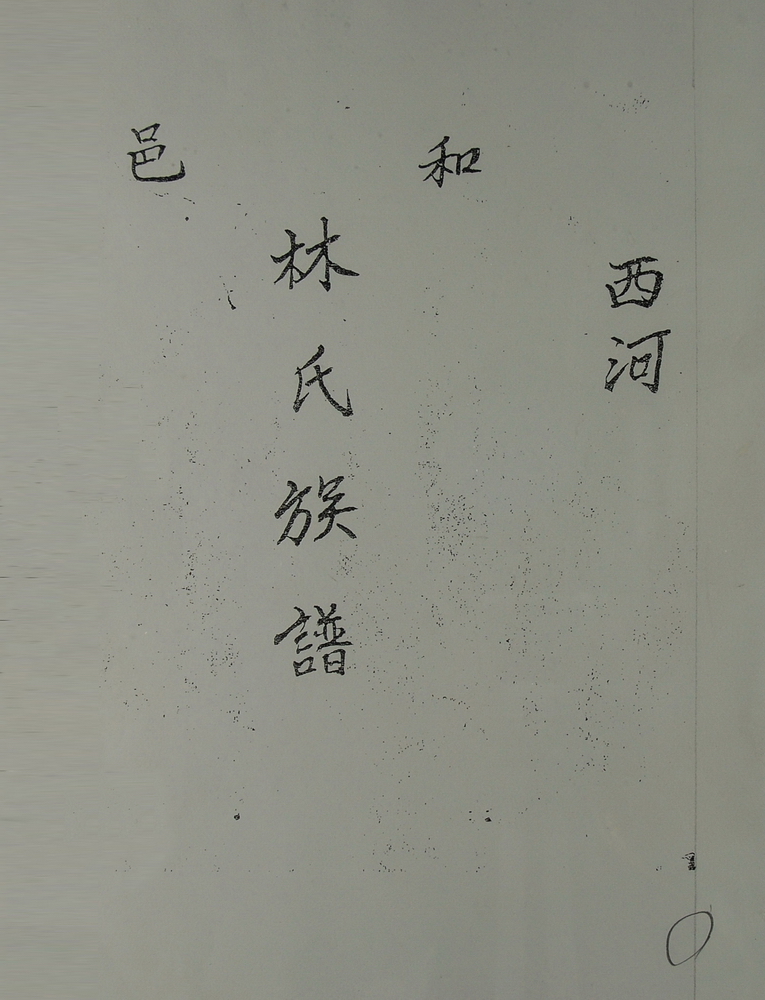 西河
和邑
林氏族譜